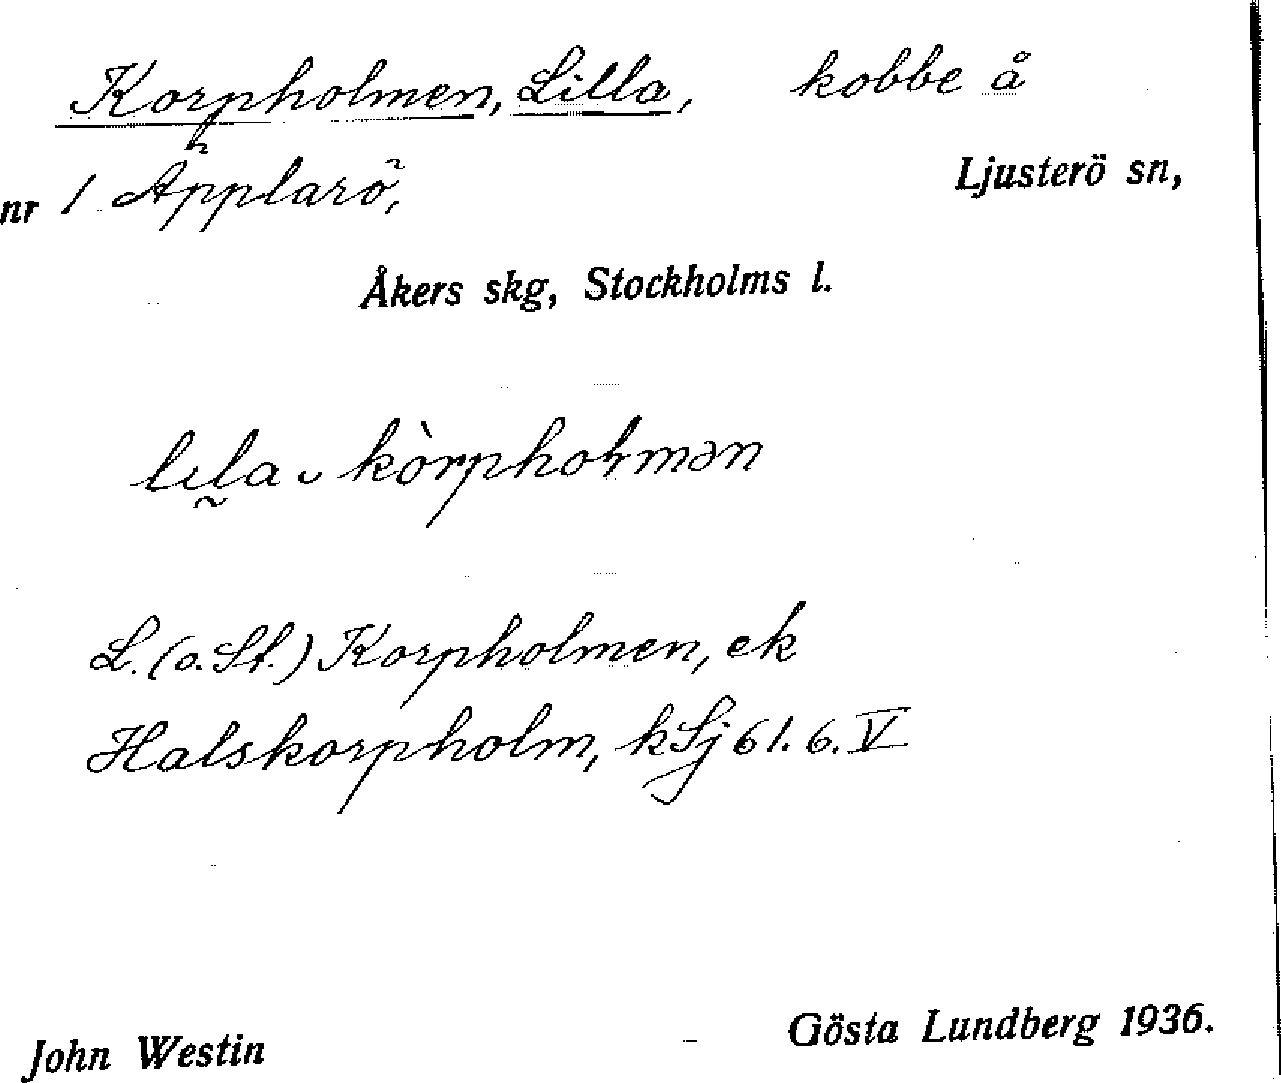 Korpholmen, Lilla, kobbe å
nr 1 Äpplarö, Ljusterö sn,
Åkers skg, Stockholms l.
lıla ᴗ kòrpholmən
L. (o. St.) Korpholmen, ek
Halskorpholm, kSj 61. 6. V
John Westin Gösta Lundberg 1936.